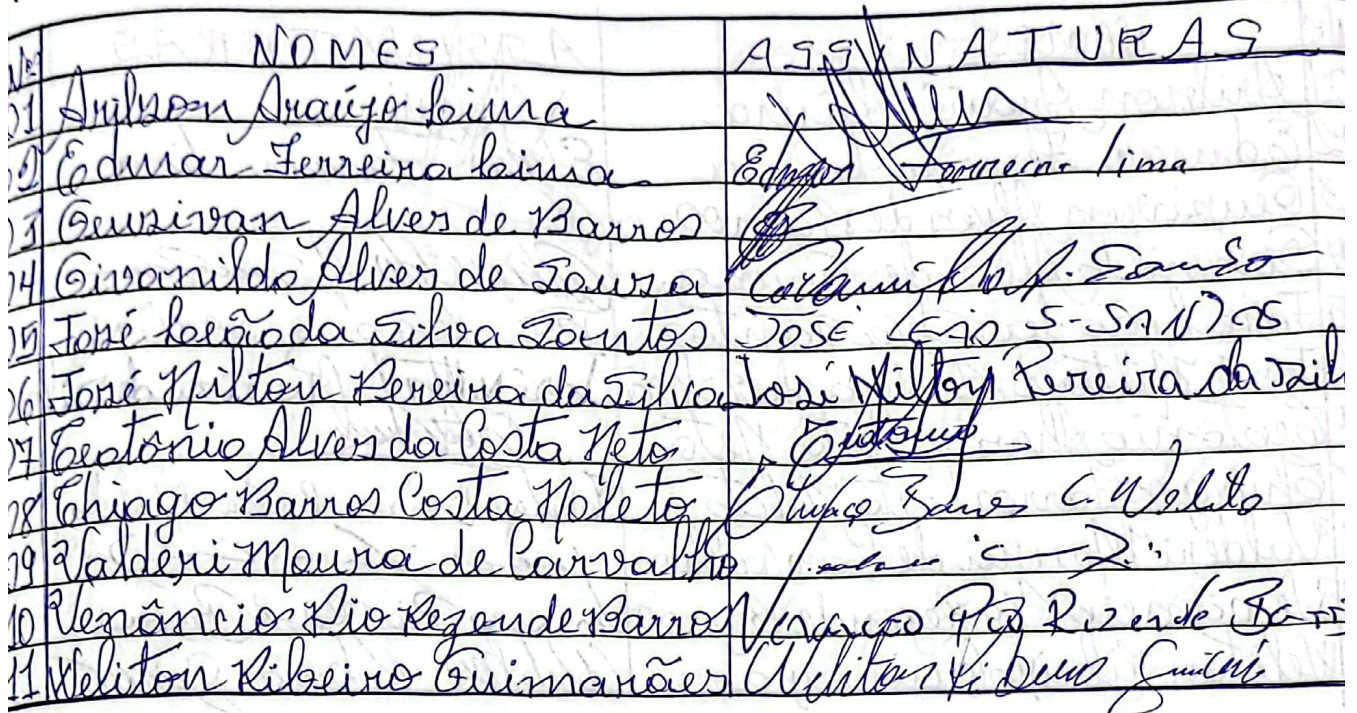 Nº NOMES ASSINATURAS
01 Arilson Araújo Lima
02 Edmar Ferreira Lima Edmar Ferreira Lima
03 Geuzivan Alves de Barros
04 Givanildo Alves de Souza A. Souza
05 José Leão da Silva Santos JOSÉ LEÃO S. SANTOS
06 José Nilton Pereira da Silva José Nilton Pereira da Sil
07 Teotônio Alves da Costa Neto Teotônio
08 Thiago Barros Costa Noleto Thiago Barros C. Noleto
09 Valderi Moura de Carvalho
10 Venâncio Pio Rezende Barros Venancio Pio Rezende Barr
11 Weliton Ribeiro Guimarães Weliton Ribeiro